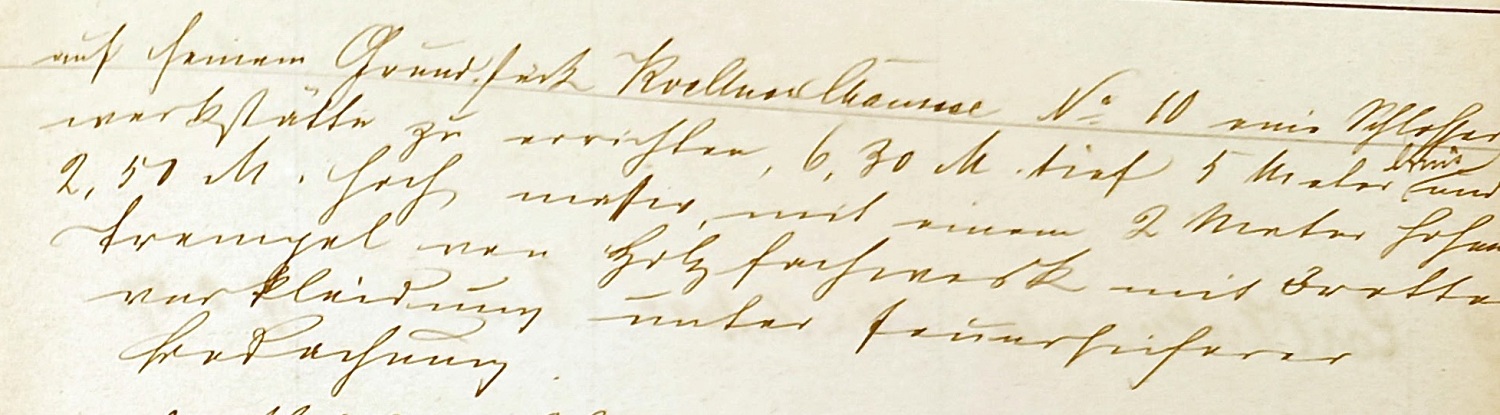 auf seinem Grundstück No 10 eine Schlosser
werkstätte zu errichten, 6,30 M. tief 5 Meter breit und
2,50 M. hoch massiv, mit einem 2 Meter hohen
Trempel von Holzfachwerk mit Bretter
verkleidung unter feuersicherer
Bedachung.